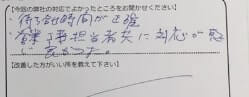 【今回の弊社の対応でよかったところをお聞かせください】
・待ち合せ時間が正確
・営業、工事担当者共に対応が感
じ良かった。
【改善した方がいい所を教えて下さい】